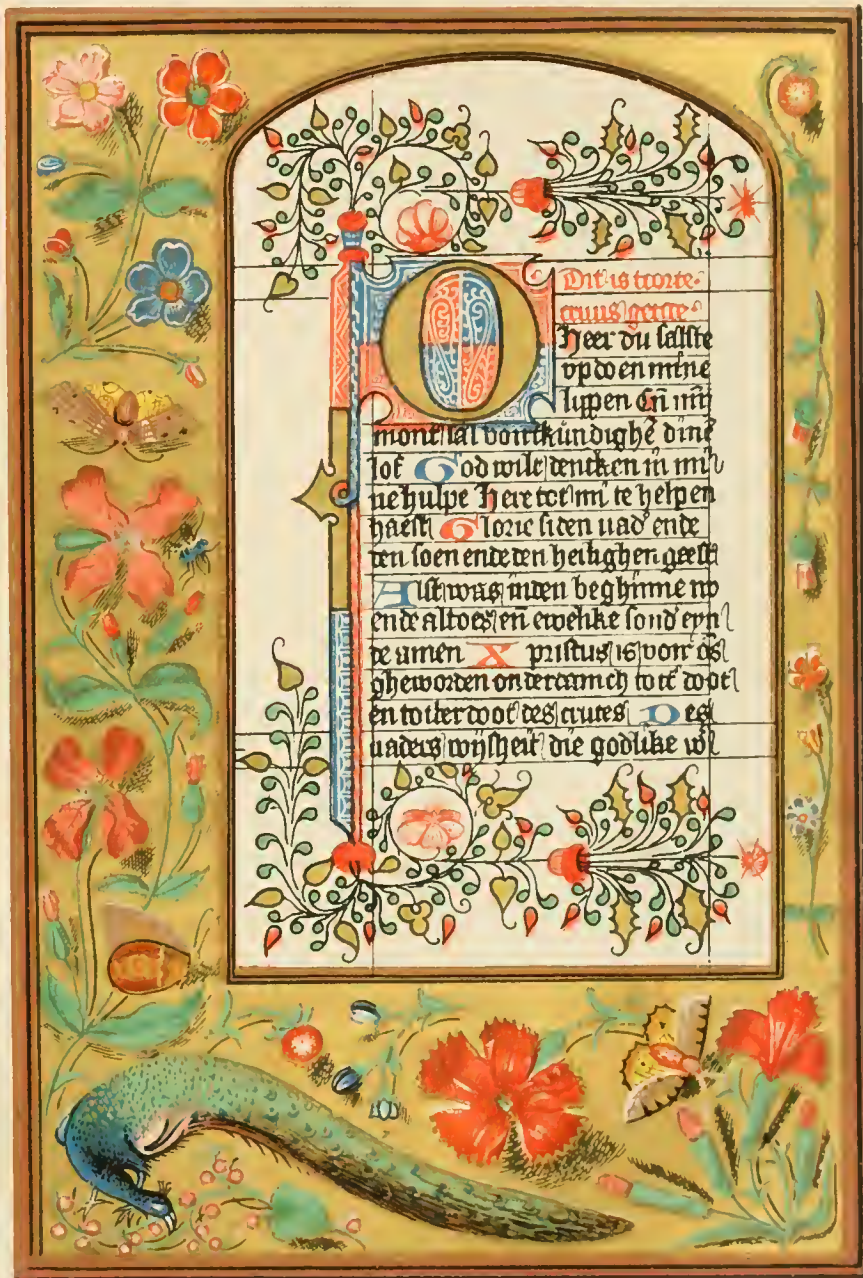 Dit is tcorte
cruus getide
O Heer du salste
opdoen mine
lippen Eñ mī
mont sal voirtkundighē dine
lof God wilt dencken in mi
ne hulpe Here tot mi te helpen
haest Glorie si den uad' ende
den soen ende den heilighen geest
Alst was inden beghinne no
ende altoes eñ ewelike sond' eyn
de amen Xpristus is voir ōs
gheworden onderdanich totē doot
eñ totter doot des cruces Des
uaders wijsheit die godlike w